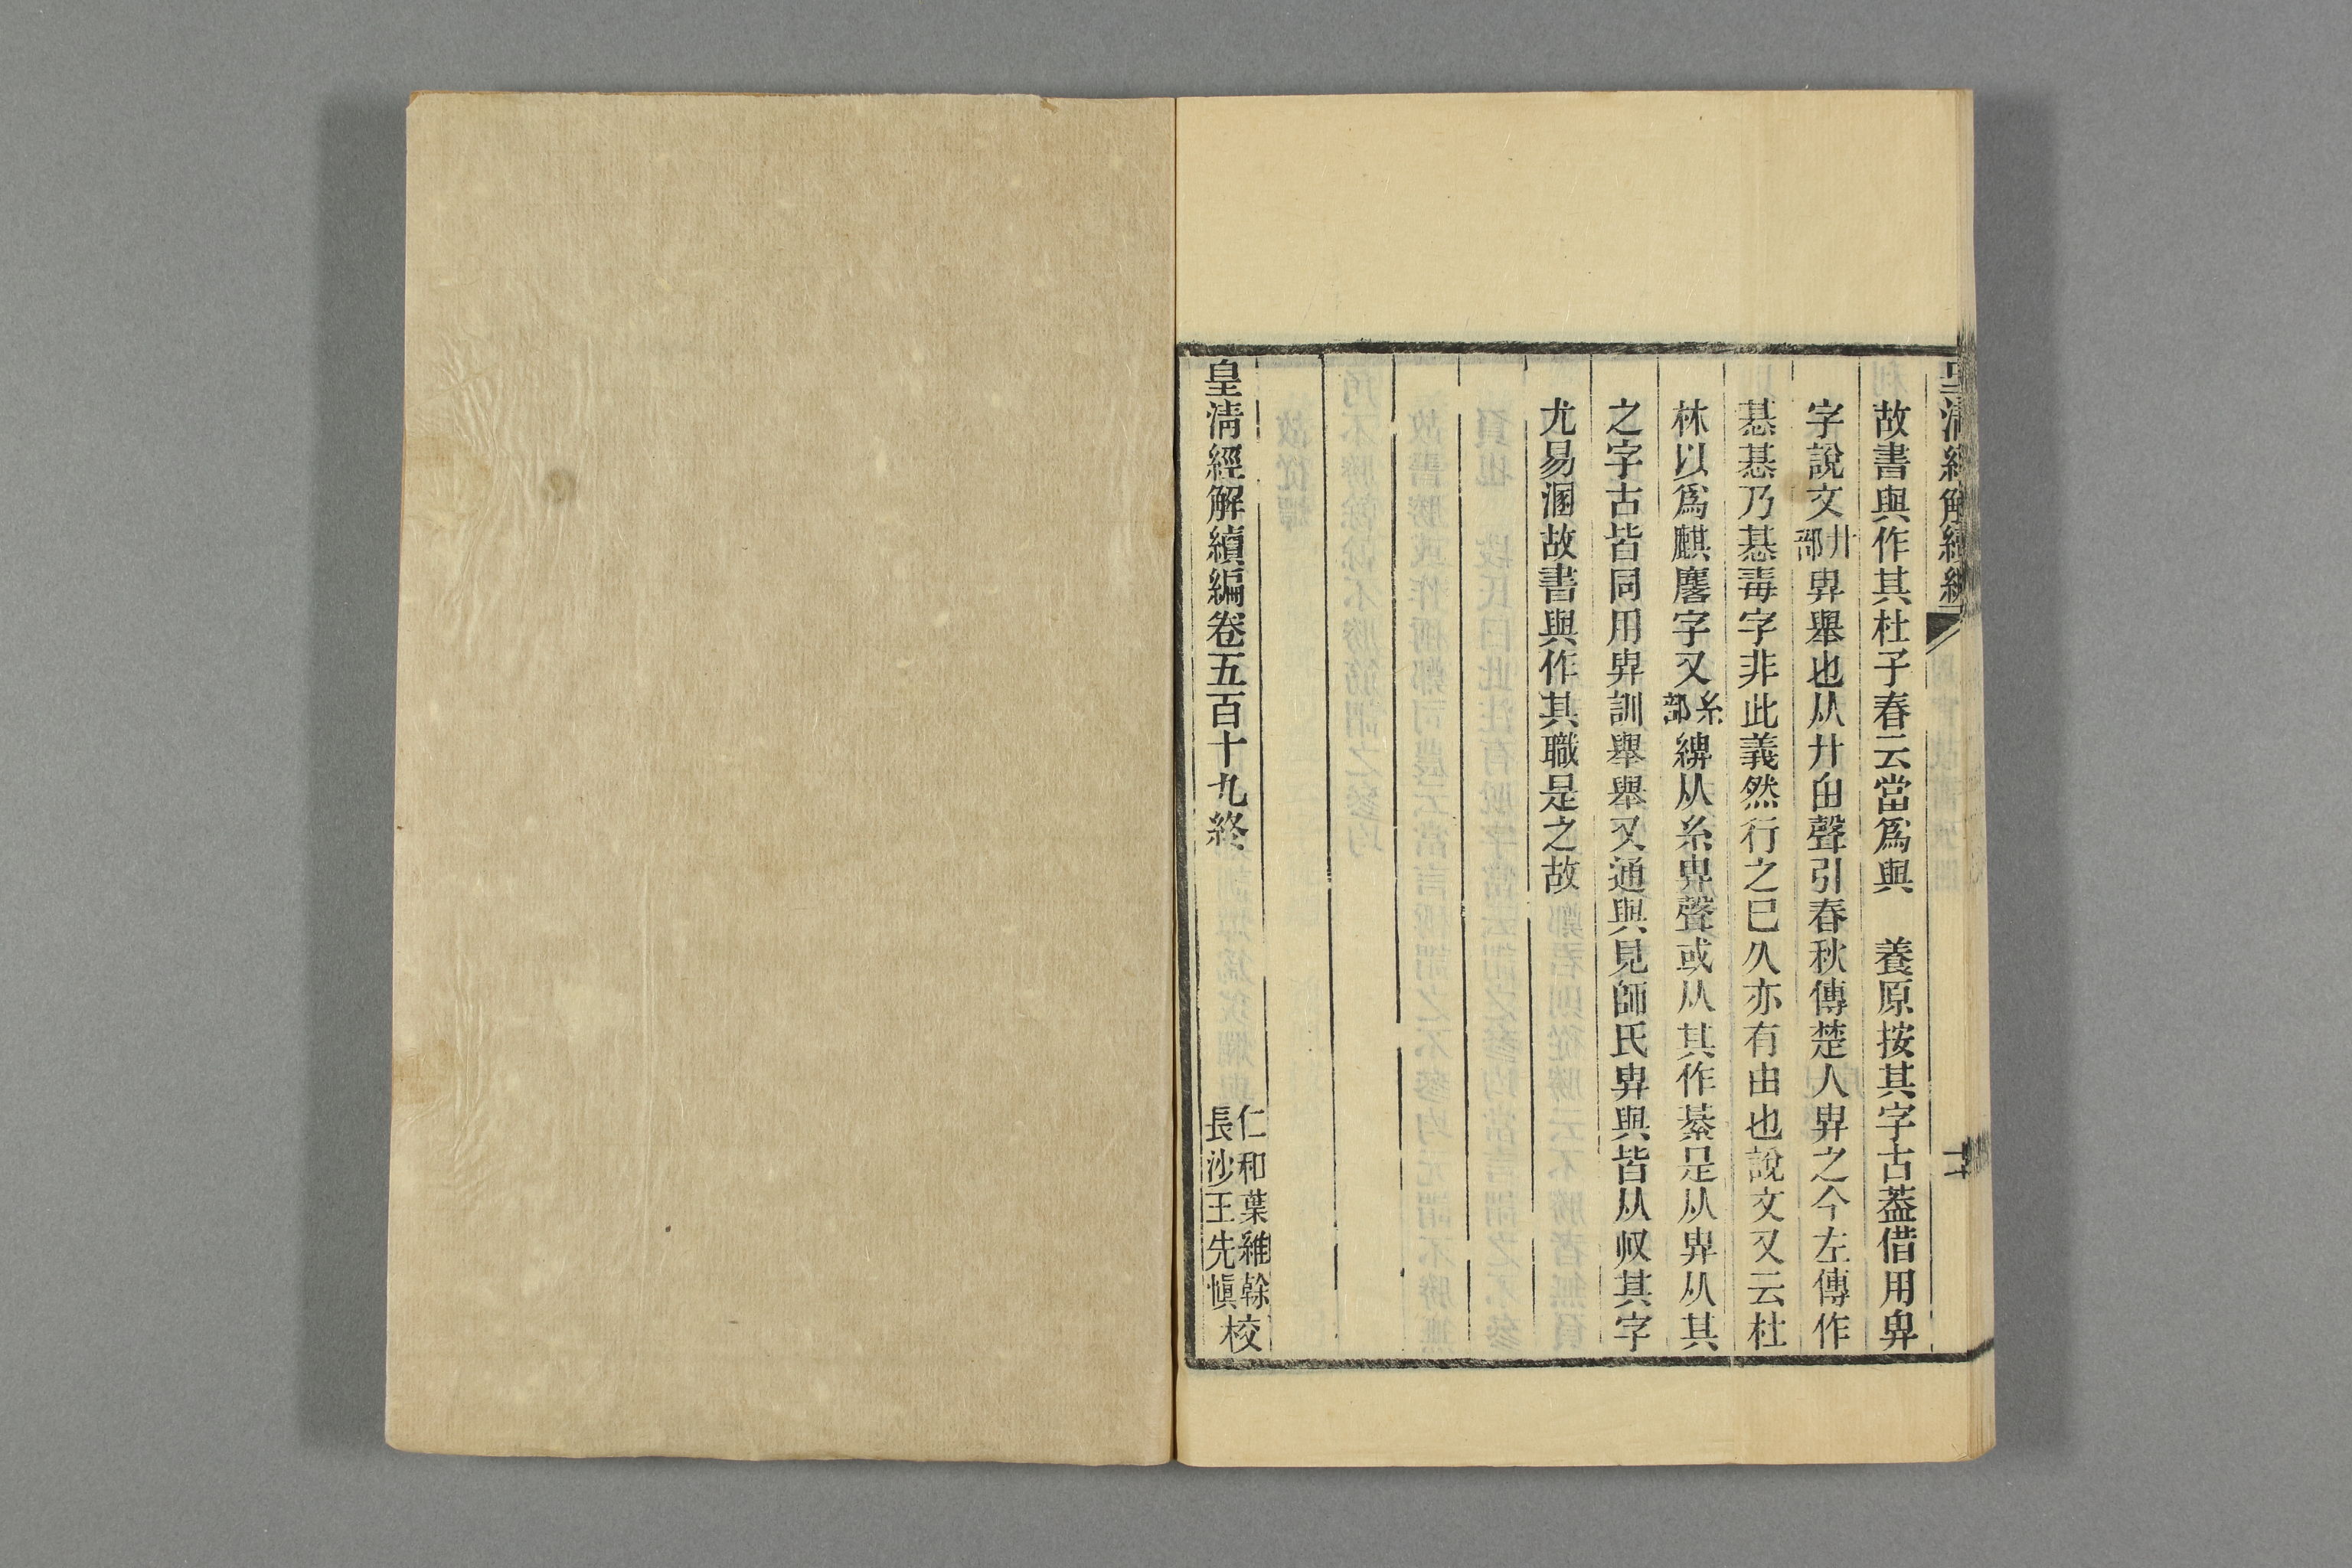 皇清經解續編
故書與作其杜子春云當爲與　養原按其字古葢借用畁
字說文廾部畁舉也从廾甶聲引春秋傳楚人畁之今左傳作
惎惎乃惎毒字非此義然行之巳久亦有由也說文又云杜
林以爲麒麐字又糸部綥从糸畁聲或从其作綦是从畁从其
之字古皆同用畁訓舉舉又通與見師氏畁與皆从収其字
尤易溷故書與作其職是之故
皇清經解續編卷五百十九終
仁和葉維榦
長沙王先愼校